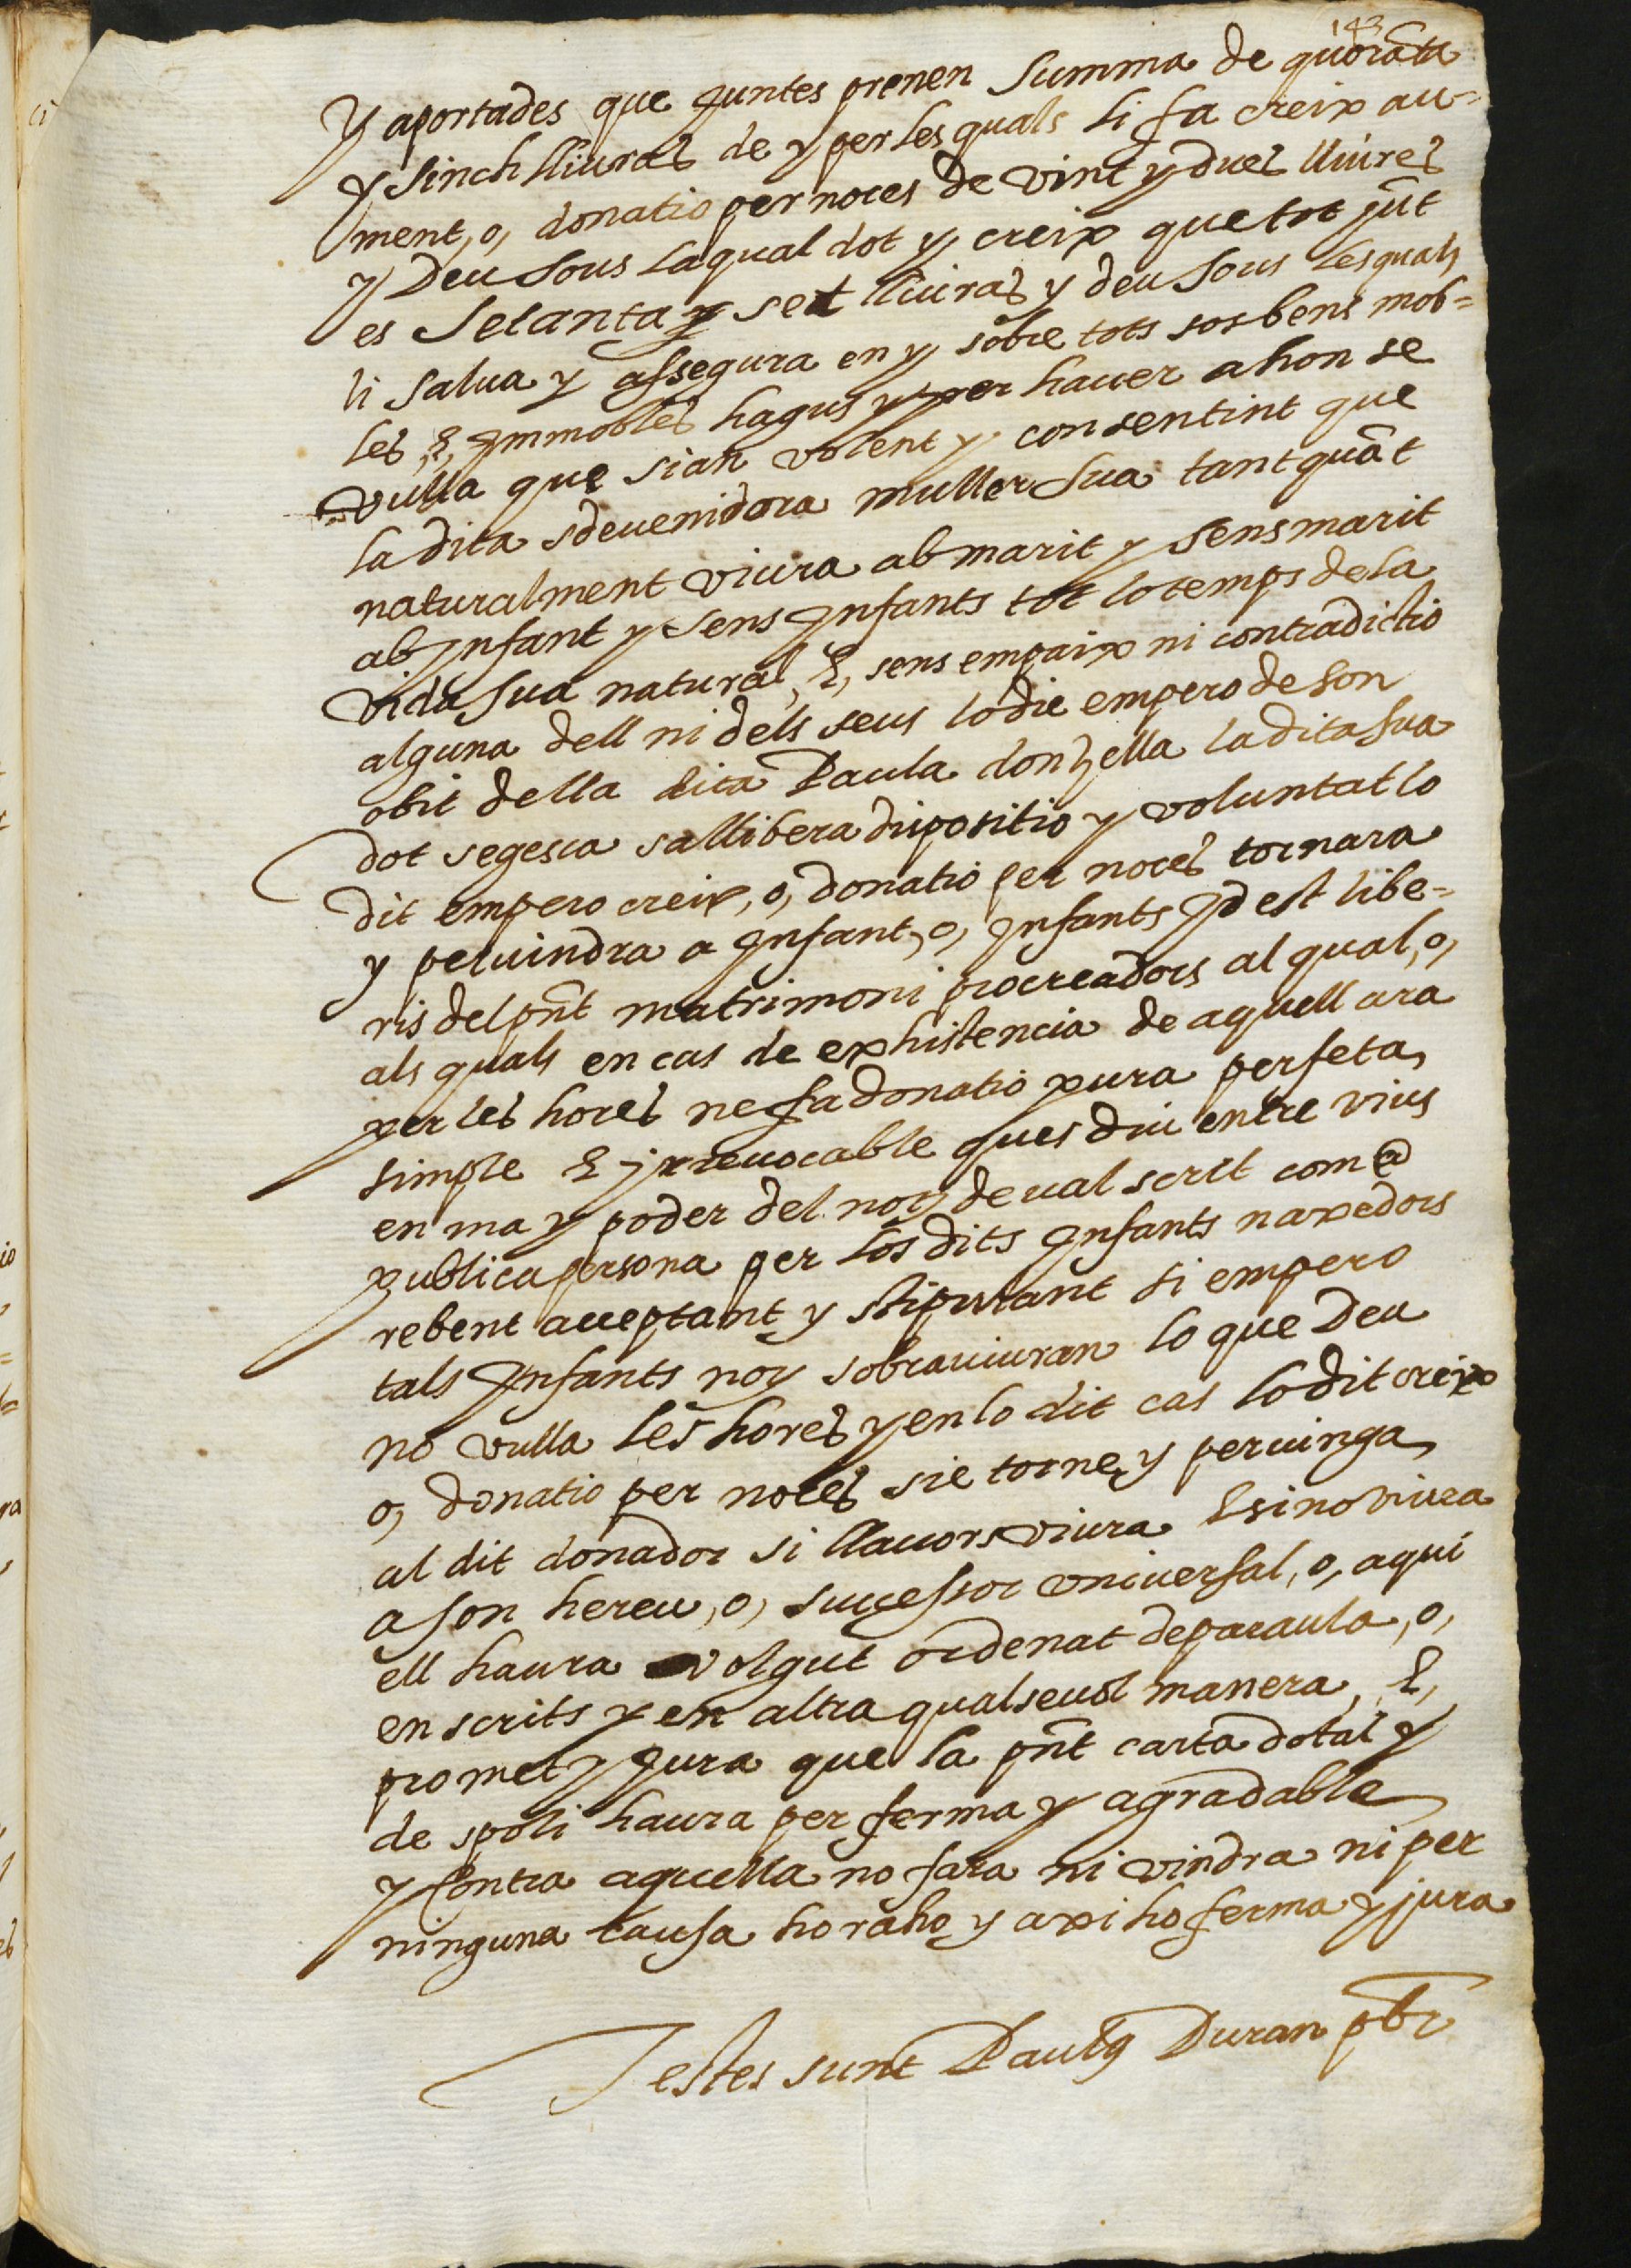 143
y aportades que juntes prenen summa de quorãta
y sinch lliures de y per les quals li fa creix au-
ment, o, donatio per noces de vint y dues lliures
y deu sous la qual dot y creix que tot jũt
es setanta y set lliures y deu sous les quals
li salua y assegura en y sobre tots sos bens mob=
les, &, ymmobles haguts y per hauer a hon se
vulla que sian volent y consentint que
la dita sdeuenidora muller sua tant quãt
naturalment viura ab marit y sens marit
ab ynfant y sens ynfants tot lo temps de la
vida sua natural, &, sens empaix ni contradictio
alguna dell ni dels seus lo die empero de son
obit della dita Paula donzella la dita sua
dot segesca sa llibera dispositio y voluntat lo
dit empero creix, o, donatio per noces tornara
y peruindra a ynfant, o, ynfants yd est libe=
ris del pñt matrimoni procreadors al qual, o,
als quals en cas de exhistencia de aquell ara
per les hores ne fa donatio pura perfeta
simple & jrreuocable ques diu entre vius
en ma y poder del noy deual scrit com @
publica persona per los dits ynfants naxedors
rebent acceptant y stipulant si empero
tals ynfants noy sobrauiuran lo que Deu
no vulla les hores y en lo dit cas lo dit creix
o, donatio per noces sie torne y peruinga
al dit donador si llauors viura & si no viura
a son hereu, o, successor vniuersal, o, a qui
ell haura volgut ordenat de paraula, o,
en scrits y en altra qualseuol manera, &,
promet y jura que la pñt carta dotal y
de spoli haura per ferma y agradable
y contra aquella no fara ni vindra ni per
ninguna causa ho raho y axi ho ferma y jura
Testes sunt Paulꝯ Duran pbr̃